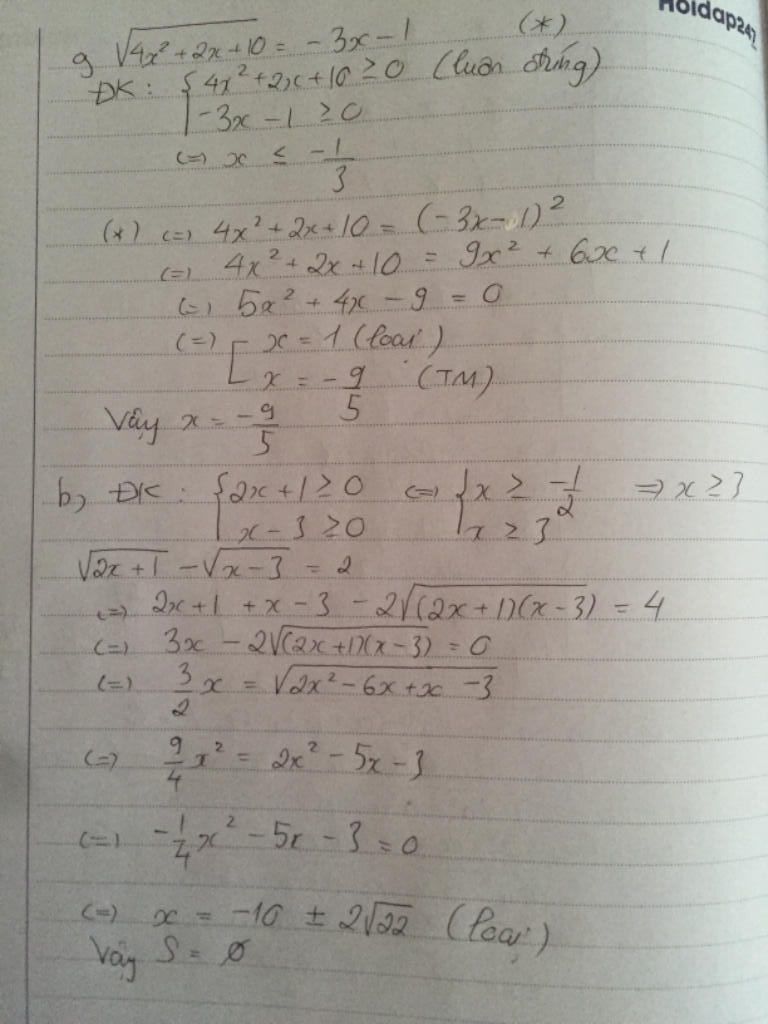 Hoidap247
a) √(4x² + 2x + 10) = -3x - 1 (*)
ĐK: { 4x² + 2x + 10 ≥ 0 (luôn đúng)
-3x - 1 ≥ 0
(=) x ≤ -1/3
(*) (=) 4x² + 2x + 10 = (-3x - 1)²
(=) 4x² + 2x + 10 = 9x² + 6x + 1
(=) 5x² + 4x - 9 = 0
(=) [ x = 1 (loại)
x = -9/5 (TM)
Vậy x = -9/5
b) ĐK: { 2x + 1 ≥ 0 (=) { x ≥ -1/2 => x ≥ 3
x - 3 ≥ 0 x ≥ 3
√(2x + 1) - √(x - 3) = 2
(=) 2x + 1 + x - 3 - 2√((2x + 1)(x - 3)) = 4
(=) 3x - 2√((2x + 1)(x - 3)) = 0
(=) 3/2 x = √(2x² - 6x + x - 3)
(=) 9/4 x² = 2x² - 5x - 3
(=) -1/4 x² - 5x - 3 = 0
(=) x = -10 ± 2√22 (loại)
Vậy S = ∅